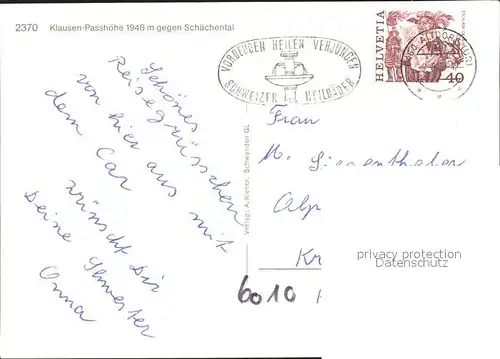 2370 Klausen-Passhöhe 1948 m gegen Schächental
VORBEUGEN HEILEN VERJÜNGEN
SCHWEIZER HEILBÄDER
HELVETIA
40
6460 ALTDORF (URI)
Schönes
Reisegrüsschen
von hier aus mit
dem Car
wünscht Dir
Deine Schwester
Anna
Verlag: A. Kistler, Schwanden GL
Frau
M. Lienenthaler
Alp
Kr
6010
privacy protection
Datenschutz